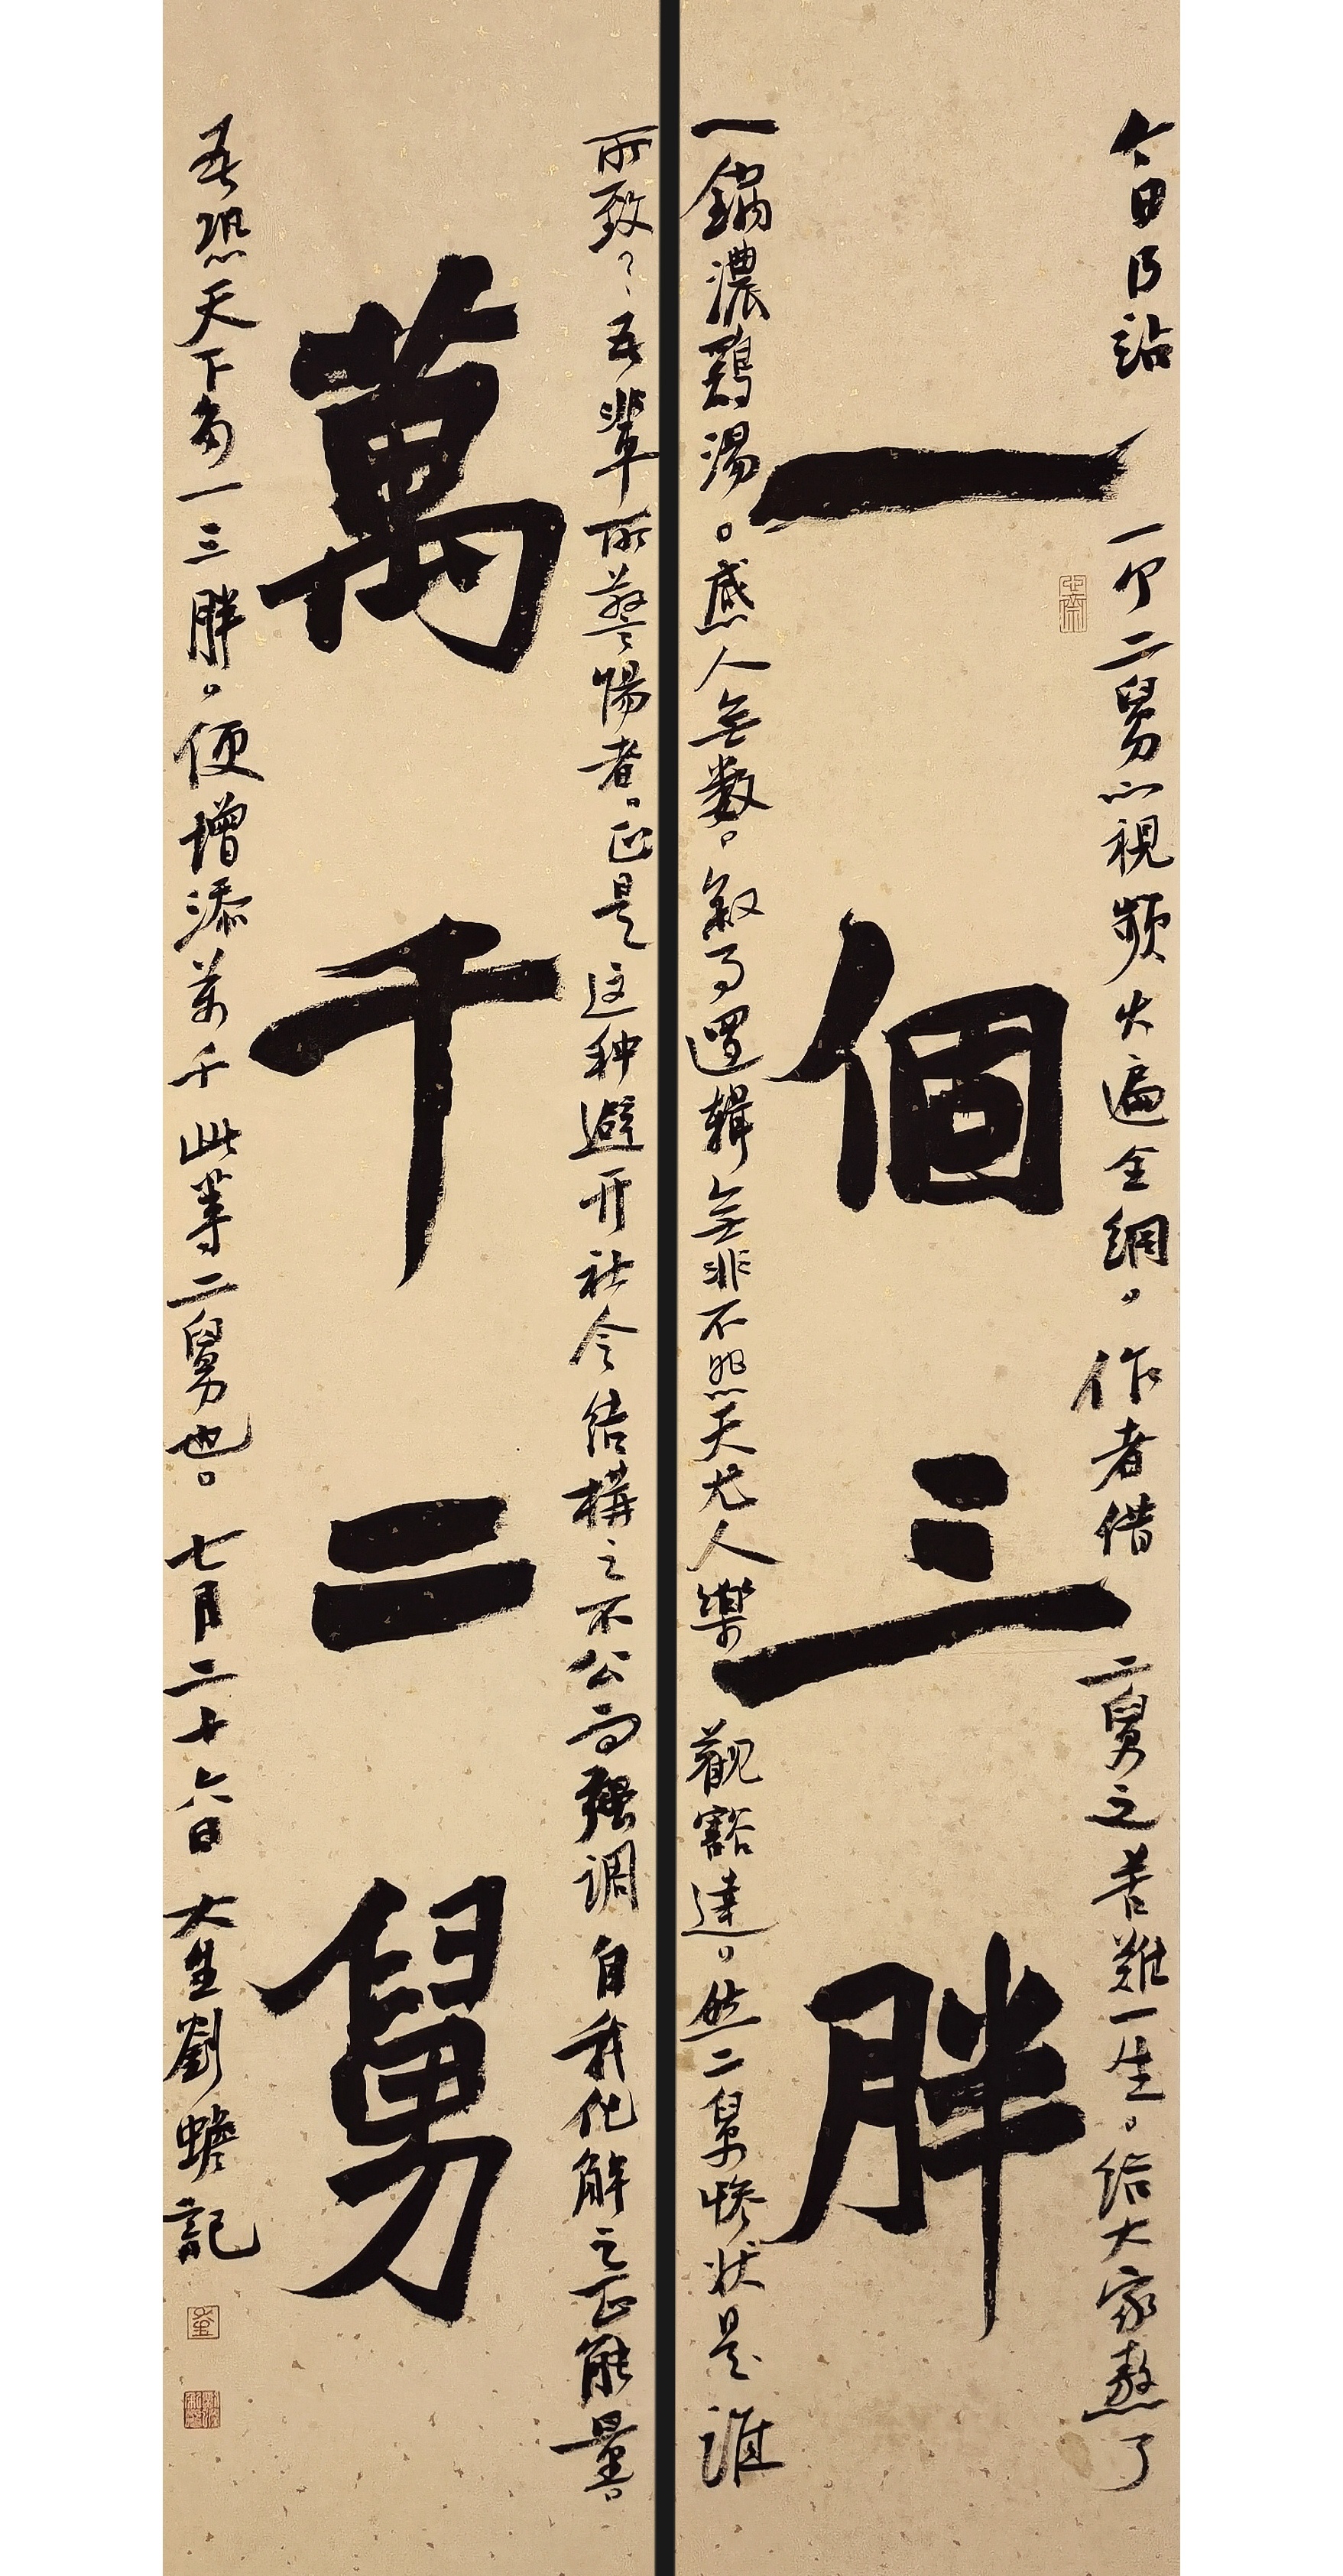 今日B站一个二舅心視頻火遍全網，作者借二舅之苦難一生。给大家熬了
一個三胖
一鍋濃鷄湯。感人無数。叙事邏輯無非不怨天尤人樂觀豁達。然二舅惨状是誰
所致？吾輩所警惕者。正是这种避开社会结構之不公而强调自我化解之正能量。
萬千二舅
吾恐天下多一三胖，便增添萬千此等二舅也。七月二十六日大生劉蟾記